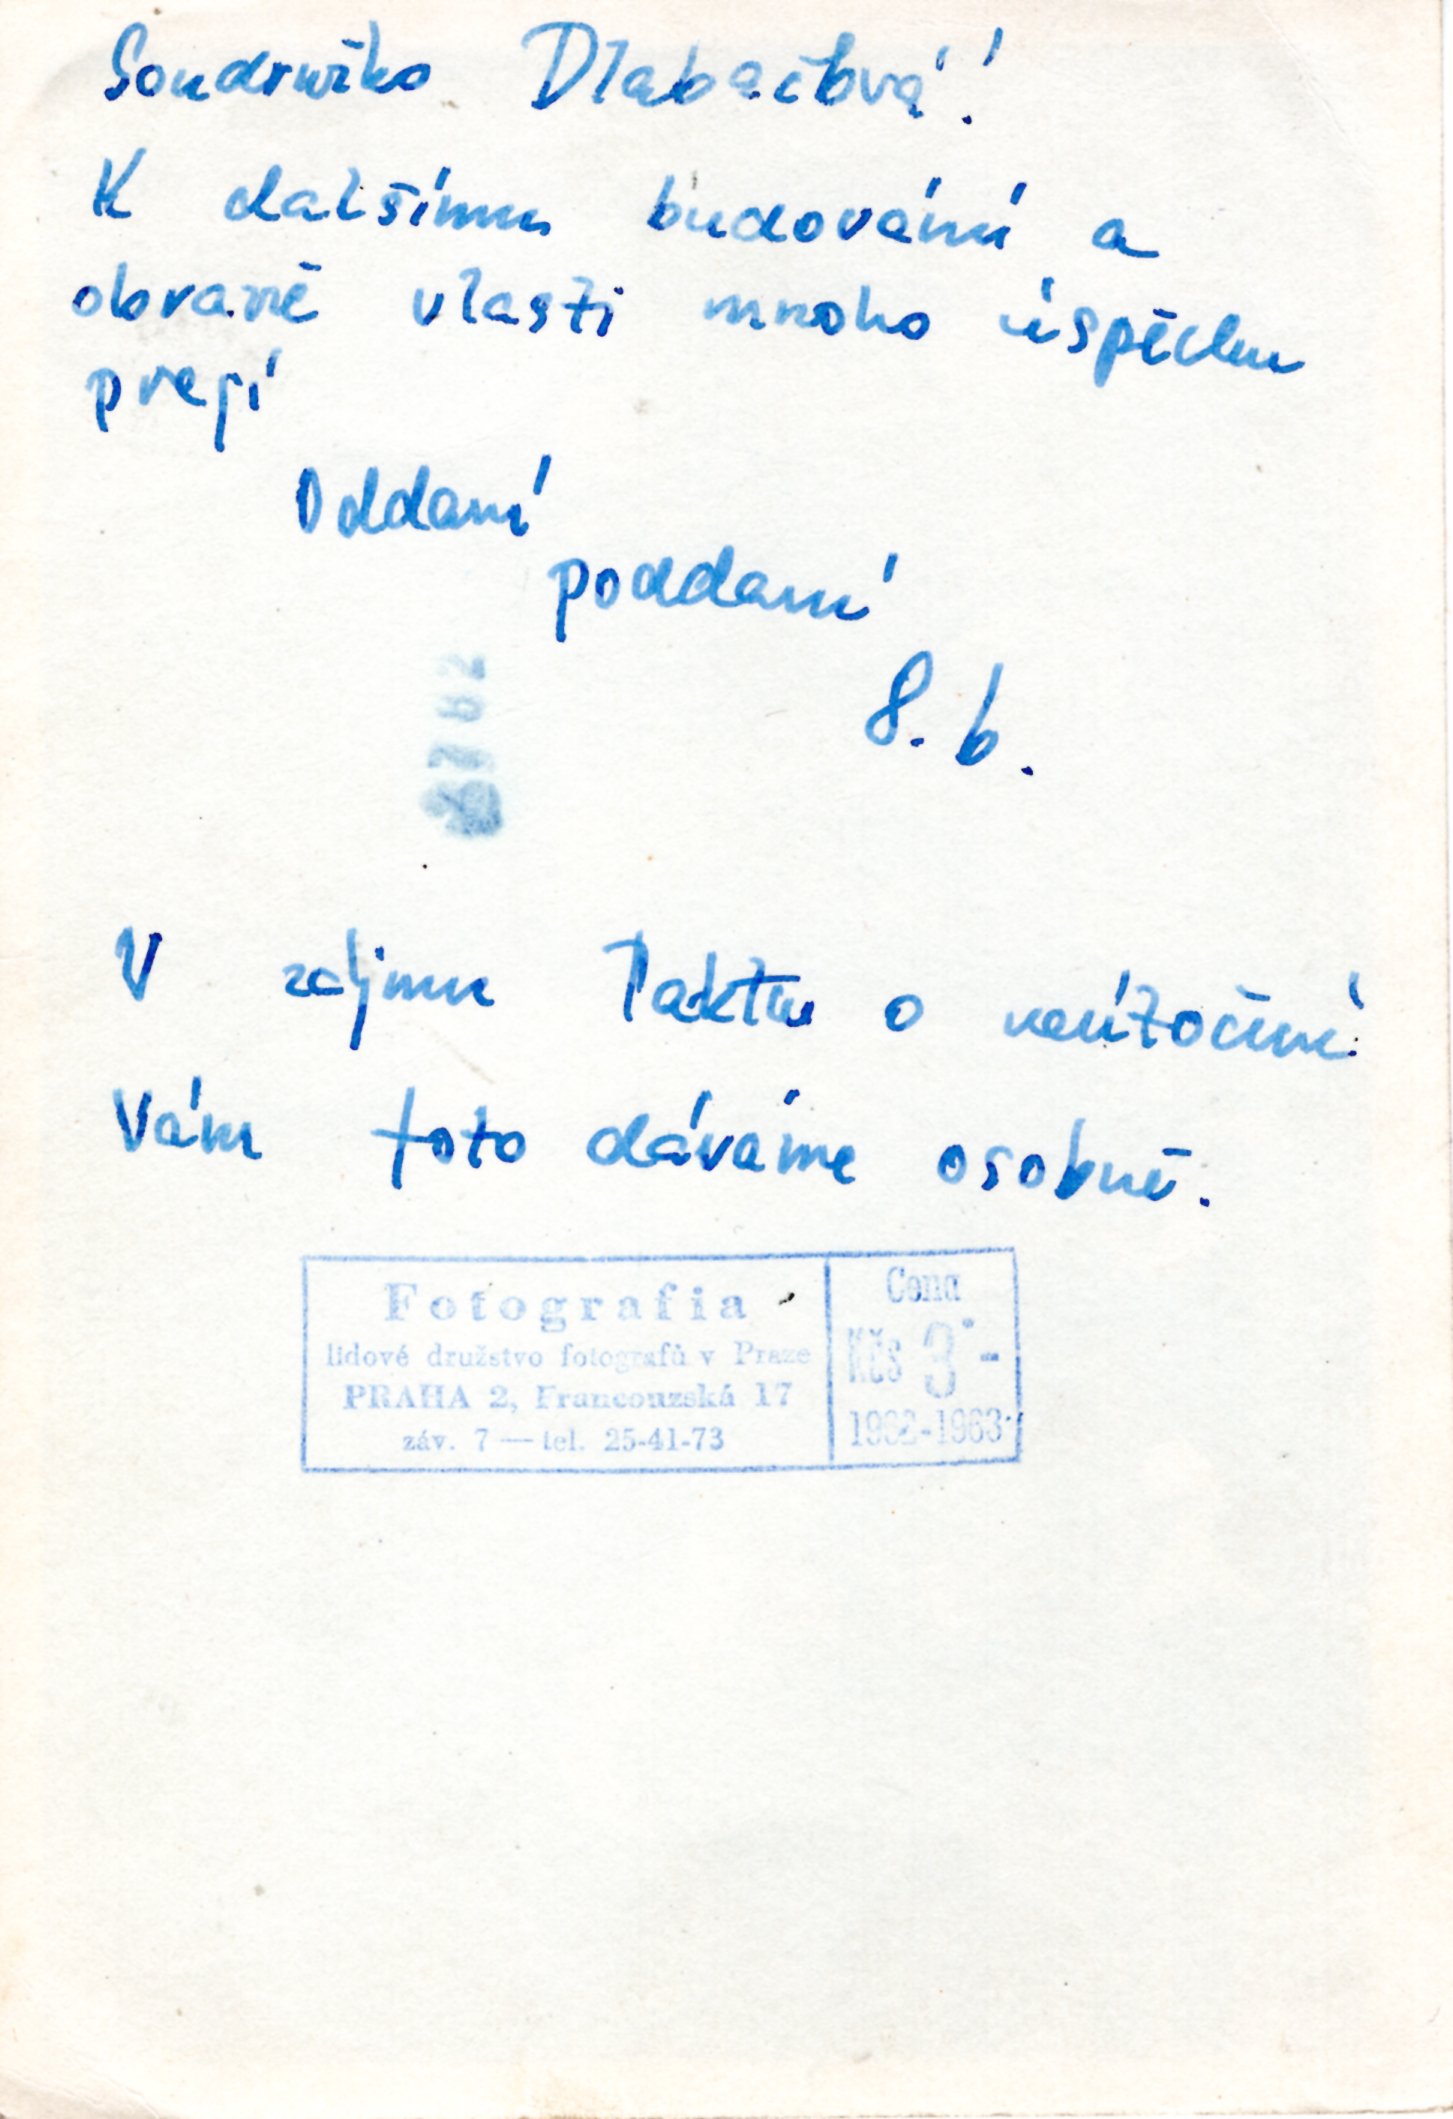 Soudružko Dlabačová!
K dalšímu budování a
obraně vlasti mnoho úspěchu
přejí
Oddaní
poddaní
8. b.
V zájmu Paktu o neútočení
Vám foto dáváme osobně.
Fotografia
lidové družstvo fotografů v Praze
PRAHA 2, Francouzská 17
záv. 7 — tel. 25-41-73
Cena
Kčs 3·-
1962-1963